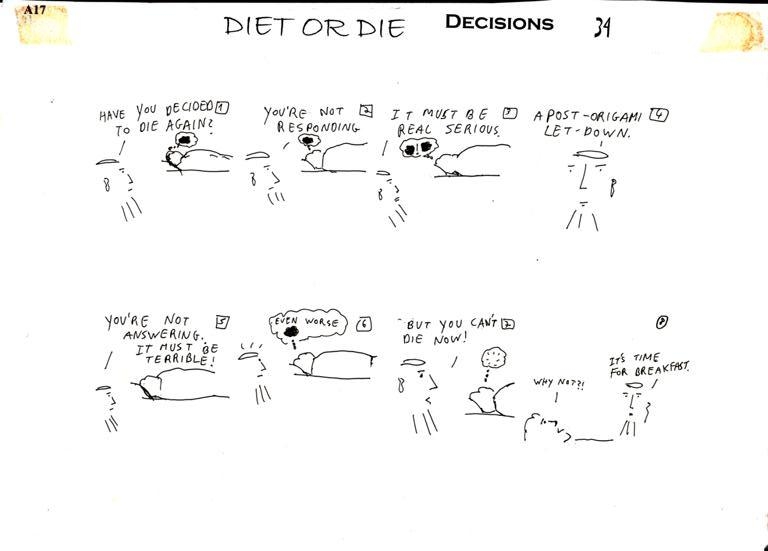 A17
DIET OR DIE DECISIONS 34
HAVE YOU DECIDED 1
TO DIE AGAIN?
YOU'RE NOT 2
RESPONDING
IT MUST BE 3
REAL SERIOUS.
A POST-ORIGAMI 4
LET-DOWN.
YOU'RE NOT 5
ANSWERING.
IT MUST BE
TERRIBLE!
EVEN WORSE 6
BUT YOU CAN'T 7
DIE NOW!
WHY NOT?!
8
IT'S TIME
FOR BREAKFAST.